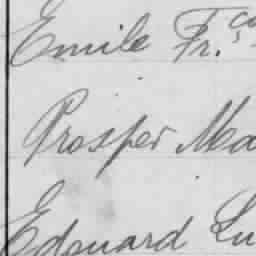 Emile Fr.
Prosper Ma
Edouard Lu